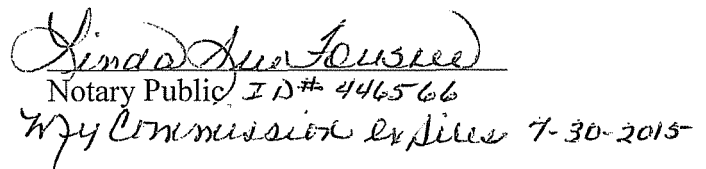 Linda Sue Fousree
Notary Public ID# 446566
My Commission expires 7-30-2015